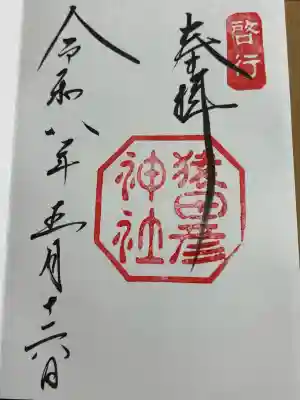 啓行
奉拝
猿田彦
神社
令和八年五月十六日